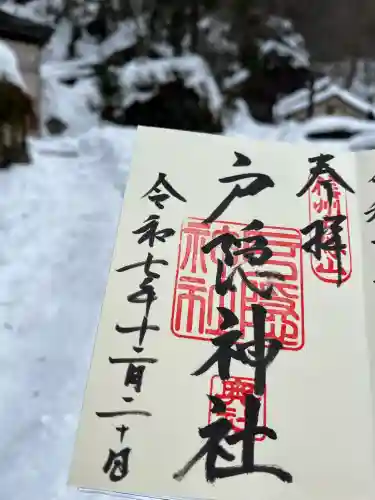 奉拝
信州戸隠山
戸隠神社
戸隠
神社
令和七年十二月二十日